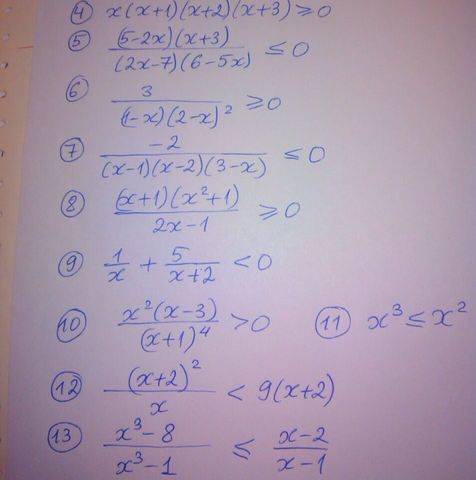 ④ x(x+1)(x+2)(x+3) ≥ 0
⑤ (5-2x)(x+3) / (2x-7)(6-5x) ≤ 0
⑥ 3 / (1-x)(2-x)² ≥ 0
⑦ -2 / (x-1)(x-2)(3-x) ≤ 0
⑧ (x+1)(x²+1) / 2x-1 ≥ 0
⑨ 1/x + 5/x+2 < 0
⑩ x²(x-3) / (x+1)⁴ > 0 ⑪ x³ ≤ x²
⑫ (x+2)² / x < 9(x+2)
⑬ x³-8 / x³-1 ≤ x-2 / x-1